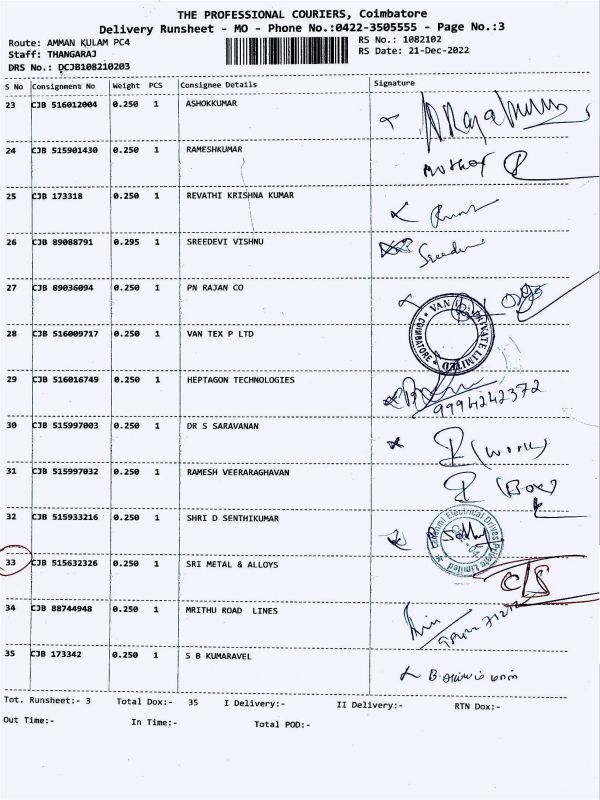 THE PROFESSIONAL COURIERS, Coimbatore
Delivery Runsheet - MO - Phone No.:0422-3505555 - Page No.:3
Route: AMMAN KULAM PC4 RS No.: 1082102
Staff: THANGARAJ RS Date: 21-Dec-2022
DRS No.: DCJB108210203
S No Consignment No Weight PCS Consignee Details Signature
23 CJB 516012004 0.250 1 ASHOKKUMAR
24 CJB 515901430 0.250 1 RAMESHKUMAR
25 CJB 173318 0.250 1 REVATHI KRISHNA KUMAR
26 CJB 89088791 0.295 1 SREEDEVI VISHNU
27 CJB 89036094 0.250 1 PN RAJAN CO
28 CJB 516009717 0.250 1 VAN TEX P LTD
VAN PRIVATE LIMITED * COIMBATORE *
29 CJB 516016749 0.250 1 HEPTAGON TECHNOLOGIES
9994242372
30 CJB 515997003 0.250 1 DR S SARAVANAN
(work)
31 CJB 515997032 0.250 1 RAMESH VEERARAGHAVAN
(Box)
32 CJB 515933216 0.250 1 SHRI D SENTHIKUMAR
Electrical Drives Private Limited
33 CJB 515632326 0.250 1 SRI METAL & ALLOYS
C/S
34 CJB 88744948 0.250 1 MRITHU ROAD LINES
35 CJB 173342 0.250 1 S B KUMARAVEL
Tot. Runsheet:- 3 Total Dox:- 35 I Delivery:- II Delivery:- RTN Dox:-
Out Time:- In Time:- Total POD:-